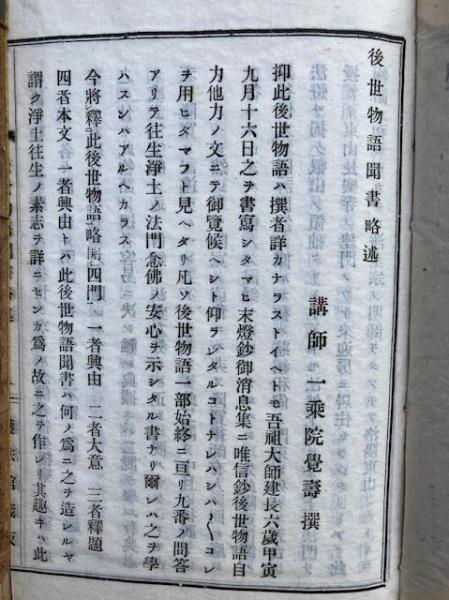 後世物語聞書略述
講師一乘院覺壽撰
抑此後世物語ハ撰者詳カナラストイヘトモ吾祖大師建長六歲甲寅
九月十六日之ヲ書寫シタマヒ末燈鈔御消息集ニ唯信鈔後世物語自
力他力ノ文ニテ御覽候ヘシト仰ラレタルコトナレハシハ〱コレ
ヲ用ヒタマフト見ヘタリ凡ソ後世物語一部始終ニ亘リ九番ノ問答
アリテ往生淨土ノ法門念佛ノ安心ヲ示シタル書ナリ爾レハ之ヲ學
ハスンハアルヘカラス
今將釋此後世物語略開四門一者興由 二者大意 三者釋題
四者本文今一者興由トハ此後世物語聞書ハ何ノ爲ニ之ヲ造レルヤ
謂ク淨土往生ノ素志ヲ詳ニセンカ爲ノ故ニ之ヲ作レリ其趣キハ此
護法館藏版